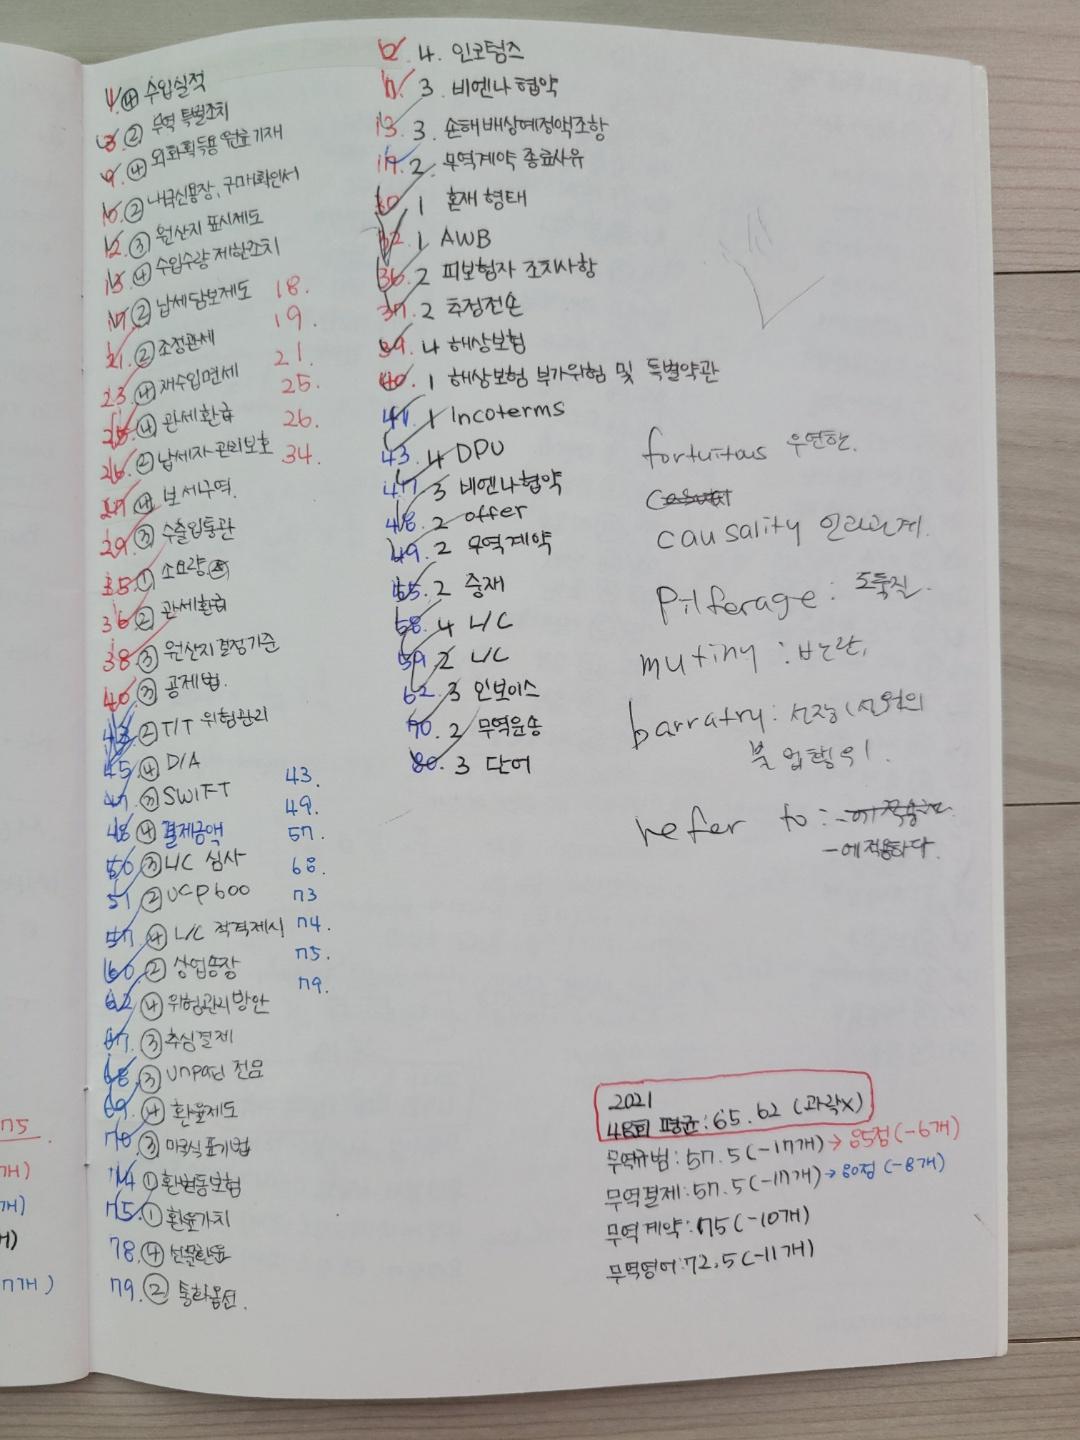 1. ④ 수입실적
3. ② 무역 특별조치
9. ④ 외화획득용 원료 기재
10. ② 내국신용장, 구매확인서
12. ③ 원산지 표시제도
13. ④ 수입수량 제한조치
17. ② 납세담보제도
21. ② 조정관세
23. ④ 재수입면세
25. ④ 관세환급
26. ② 납세자 권리보호
27. ④ 보세구역.
29. ③ 수출입통관
35. ① 소요량
36. ② 관세환급
38. ③ 원산지결정기준
40. ③ 공제법.
43. ② T/T 위험관리
45. ④ D/A
47. ② SWIFT
48. ④ 결제금액
50. ③ L/C 심사
51. ② UCP600
57. ④ L/C 적격제시
60. ② 상업송장
62. ④ 위험관리 방안
67. ③ 추심결제
68. ③ unpaid 전문
69. ④ 환율제도
70. ③ 미국식 표기법
74. ① 환변동보험
75. ① 환율가치
78. ④ 선물환율
79. ② 통화옵션.
18.
19.
21.
25.
26.
34.
43.
49.
57.
68.
73
74.
75.
79.
4. 인코텀즈
11. 3. 비엔나 협약
13. 3. 손해배상예정액조항
19. 2. 무역계약 종료사유
30. 1 혼재 형태
32. 1 AWB
36. 2 피보험자 조치사항
37. 2 추정전손
39. 4 해상보험
40. 1 해상보험 부가위험 및 특별약관
41. 1 Incoterms
43. 4 DPU
47. 3 비엔나협약
48. 2 offer
49. 2 무역계약
55. 2 중재
58. 4 L/C
59. 2 L/C
62. 3 인보이스
70. 2 무역운송
80. 3 단어
fortuitous 우연한.
causality 인과관계.
Pilferage : 도둑질.
mutiny : 반란,
barratry : 선장(선원의
불법행위).
refer to : -에 적용하다.
2021
48회 평균 : 65.62 (과락X)
무역규범 : 57.5 (-17개) → 85점 (-6개)
무역결제 : 57.5 (-17개) → 80점 (-8개)
무역계약 : 75 (-10개)
무역영어 : 72.5 (-11개)
75
7개)